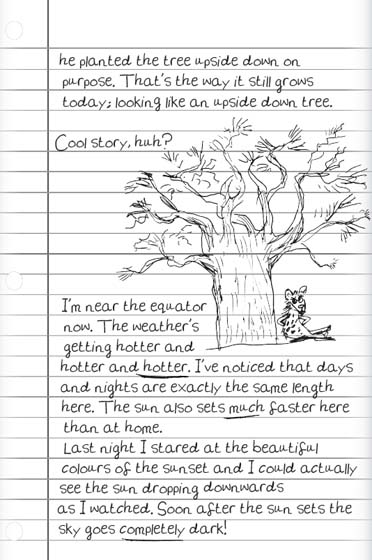 he planted the tree upside down on
purpose. That's the way it still grows
today; looking like an upside down tree.
Cool story, huh?
I'm near the equator
now. The weather's
getting hotter and
hotter and hotter. I've noticed that days
and nights are exactly the same length
here. The sun also sets much faster here
than at home.
Last night I stared at the beautiful
colours of the sunset and I could actually
see the sun dropping downwards
as I watched. Soon after the sun sets the
sky goes completely dark!